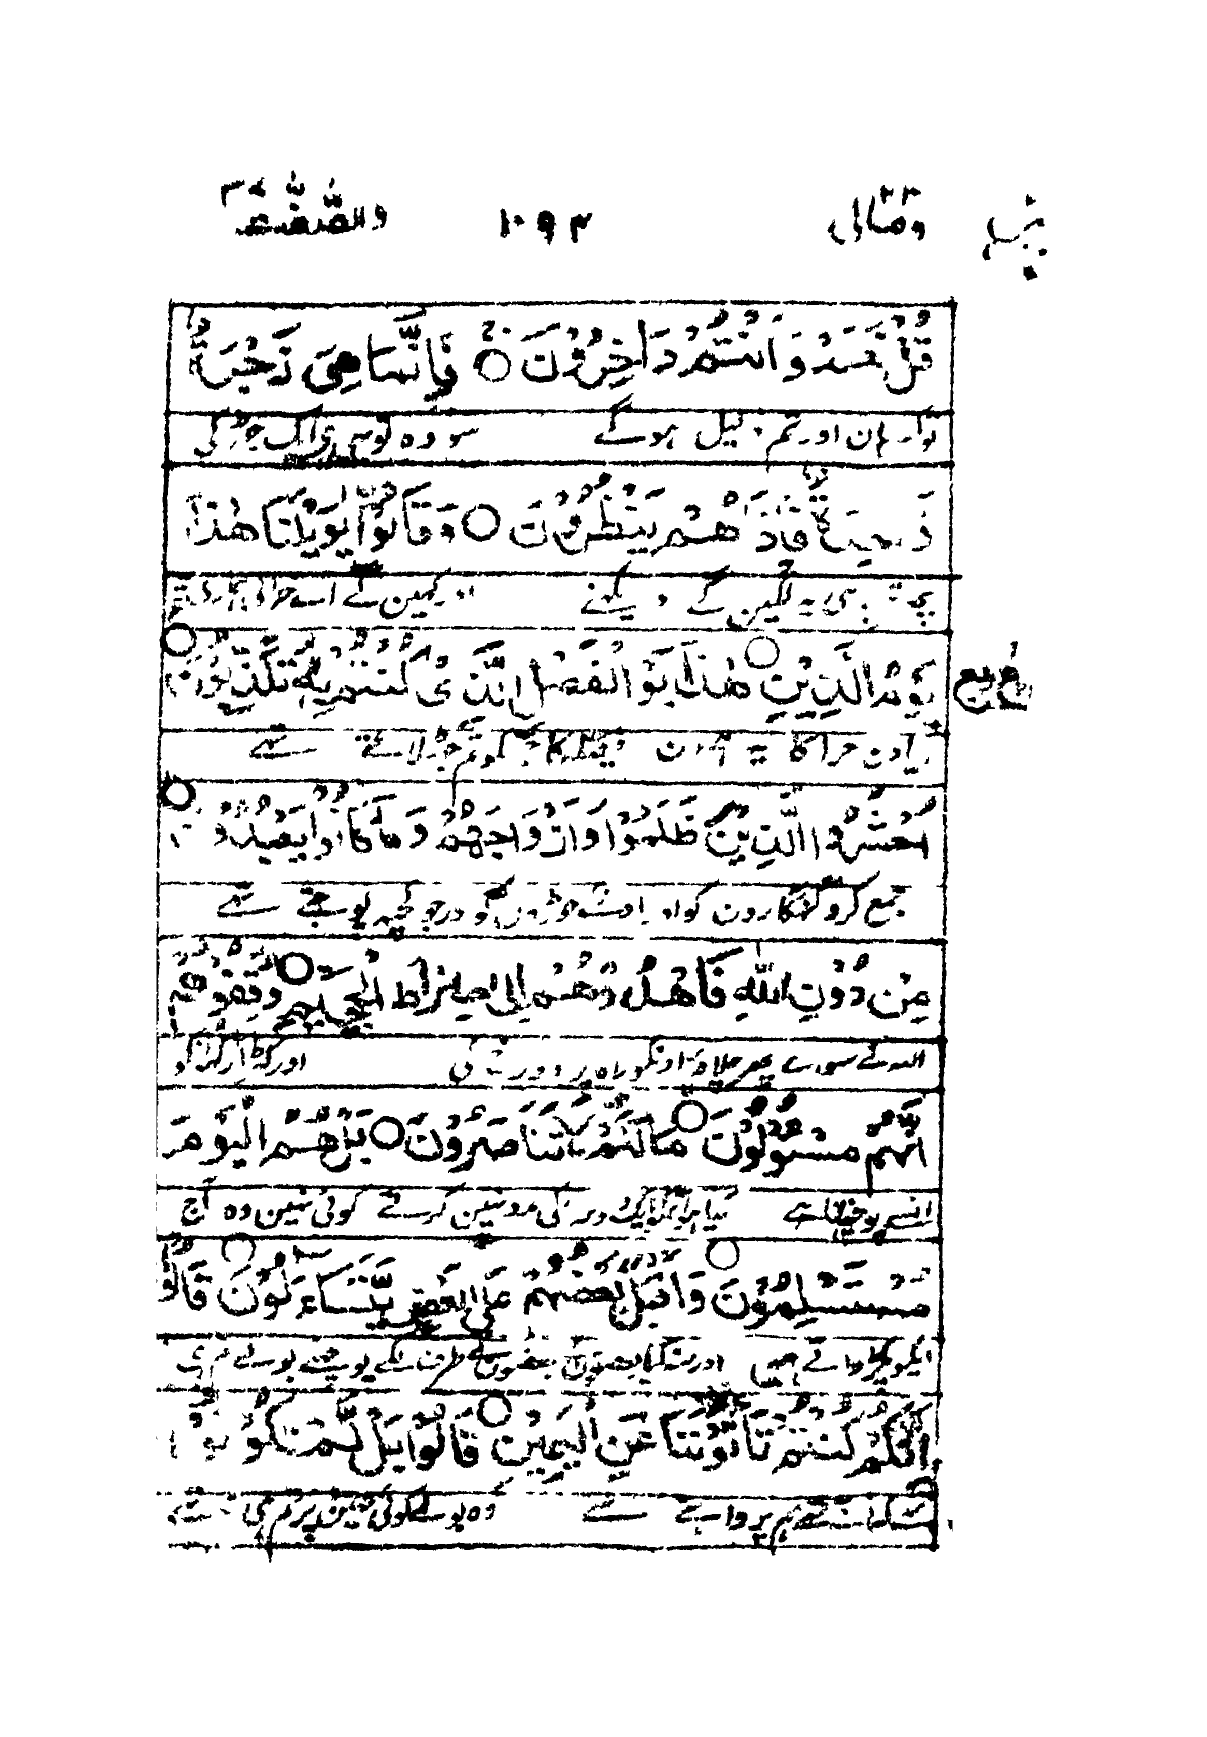 ومالی ۲۳ ۱۰۹۴ والصّٰفّٰت ۳۷
قُلْ نَعَمْ وَاَنْتُمْ دَاخِرُوْنَ ○ فَاِنَّمَا هِیَ زَجْرَةٌ
تو کہہ ہان اور تم ذلیل ہوگے سو وہ تو یہی ایک جھڑکی
وَّاحِدَةٌ فَاِذَا هُمْ یَنْظُرُوْنَ ○ وَقَالُوْا یٰوَیْلَنَا هٰذَا
پھر تبہی یہ لگین گے دیکھنے اور کہین گے اے خرابی ہماری یہ
یَوْمُ الدِّیْنِ ○ هٰذَا یَوْمُ الْفَصْلِ الَّذِیْ كُنْتُمْ بِهٖ تُكَذِّبُوْنَ ○
آیا دن جزا کا یہ ہے دن فیصلہ کا جسکو تم جھٹلاتے تھے
ربع
اُحْشُرُوا الَّذِیْنَ ظَلَمُوْا وَاَزْوَاجَهُمْ وَمَا كَانُوْا یَعْبُدُوْنَ ○
جمع کرو گنہگارون کو اور انکے جوڑون کو اور جو کچھ پوجتے تھے
مِنْ دُوْنِ اللّٰهِ فَاهْدُوْهُمْ اِلٰی صِرَاطِ الْجَحِیْمِ ○ وَقِفُوْهُمْ
اللہ کے سواے پھر چلاؤ اونکو راہ پر دوزخ کی اور کھڑا رکھو انکو
اِنَّهُمْ مَسْئُوْلُوْنَ ○ مَالَكُمْ لَا تَنَاصَرُوْنَ ○ بَلْ هُمُ الْیَوْمَ
انسے پوچھنا ہے کیا ہوا تمکو ایک دوسرے کی مدد نہین کرتے کوئی نہین وہ آج
مُسْتَسْلِمُوْنَ ○ وَاَقْبَلَ بَعْضُهُمْ عَلٰی بَعْضٍ یَّتَسَآءَلُوْنَ ○ قَالُوْا
آپکو پکڑواتے ہین اور منہ کیا بعضون نے بعضون کے طرف لگے پوچھنے بولے تم ہی
اِنَّكُمْ كُنْتُمْ تَاْتُوْنَنَا عَنِ الْیَمِیْنِ ○ قَالُوْا بَلْ لَّمْ تَكُوْنُوْا
تھے کہ آتے تھے ہم پر داہنے سے وہ بولے کوئی نہین پر تم ہی نہ تھے